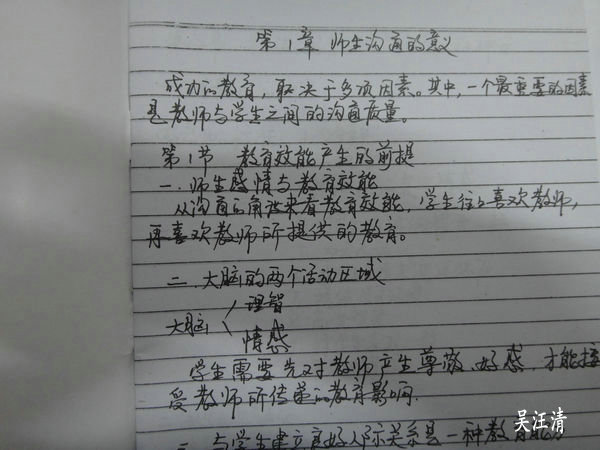 第1章 师生沟通的意义
成功的教育，取决于多项因素。其中，一个最重要的因素
是教师与学生之间的沟通质量。
第1节 教育效能产生的前提
一、师生感情与教育效能
从沟通的角度来看教育效能，学生往往喜欢教师，
再喜欢教师所提供的教育。
二、大脑的两个活动区域
理智
大脑
情感
学生需要先对教师产生尊敬、好感，才能接
受教师所传递的教育影响。
三、与学生建立良好人际关系是一种教育能力
吴汪清